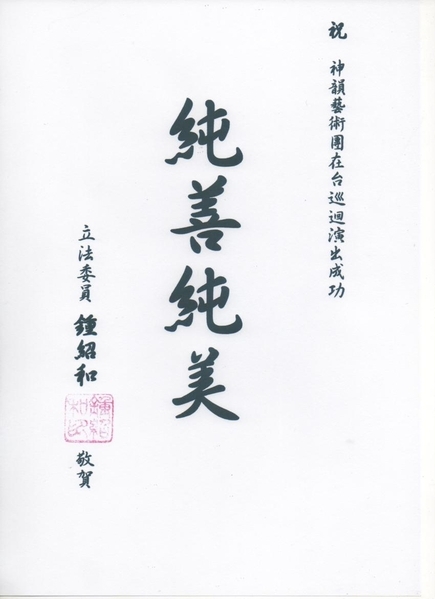 祝 神韻藝術團在台巡迴演出成功
純善純美
立法委員 鍾紹和 敬賀